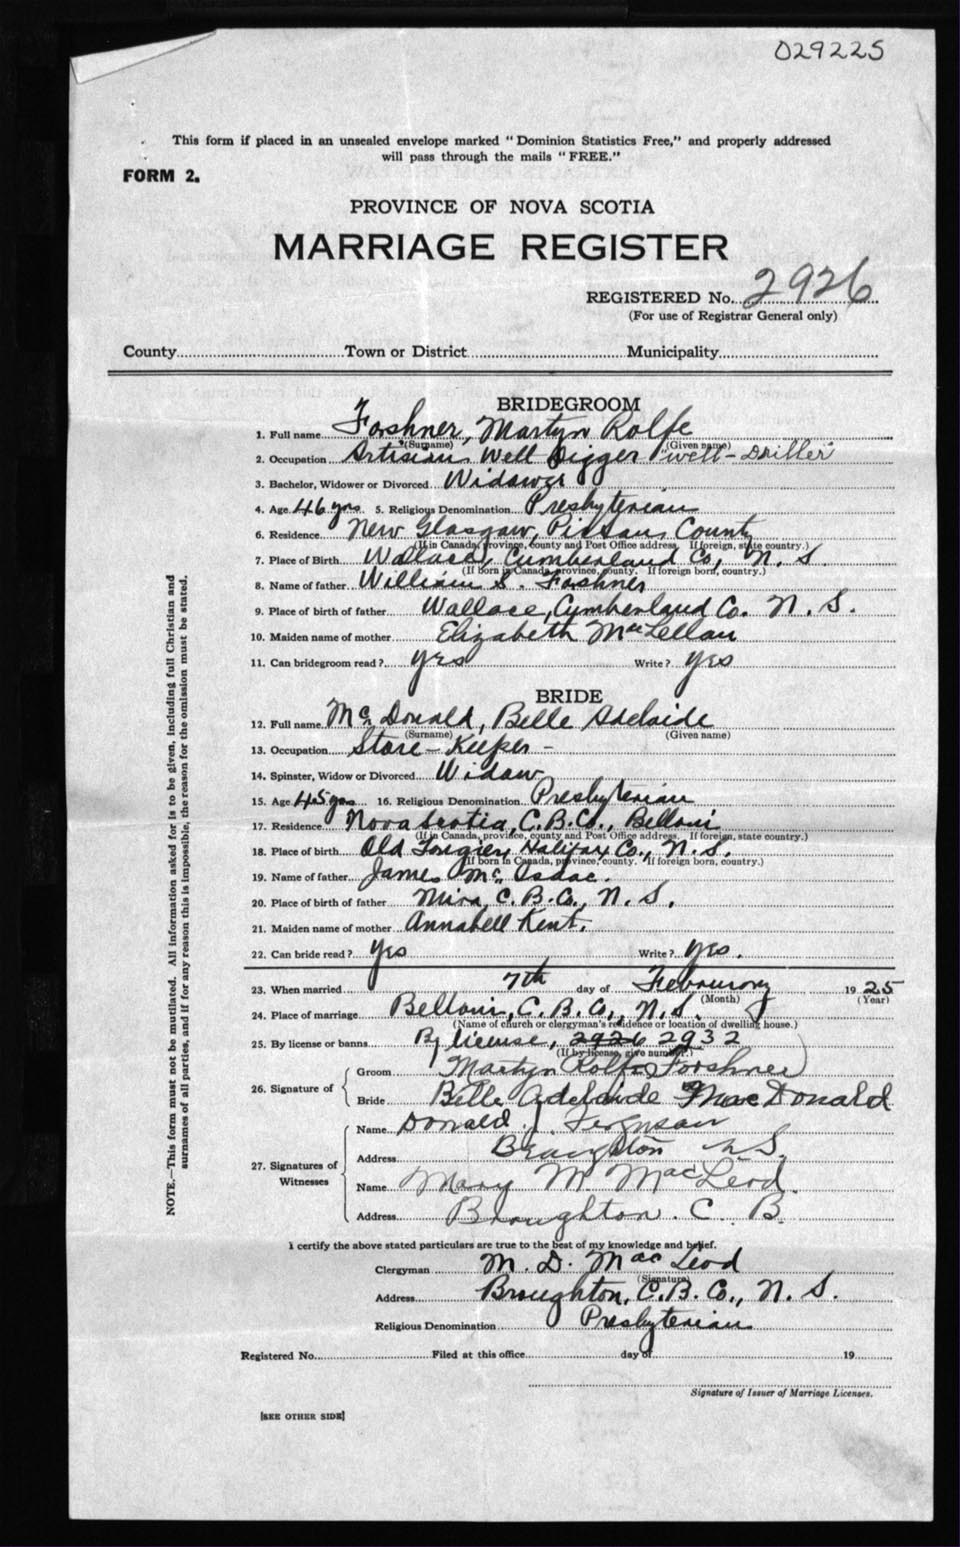 029225
This form if placed in an unsealed envelope marked "Dominion Statistics Free," and properly addressed
will pass through the mails "FREE."
FORM 2.
PROVINCE OF NOVA SCOTIA
MARRIAGE REGISTER
REGISTERED No. 2926
(For use of Registrar General only)
County Town or District Municipality
BRIDEGROOM
1. Full name Forshner, Martyn Rolfe
(Surname) (Given name)
2. Occupation Artisian Well Digger "well-Driller"
3. Bachelor, Widower or Divorced Widower
4. Age 46 yrs 5. Religious Denomination Presbyterian
6. Residence New Glasgow, Pictou, County
(If in Canada, province, county and Post Office address. If foreign, state country.)
7. Place of Birth Wallace, Cumberland Co., N. S.
(If born in Canada, province, county. If foreign born, country.)
8. Name of father William S. Forshner
9. Place of birth of father Wallace, Cumberland Co. N. S.
10. Maiden name of mother Elizabeth MacLellan
11. Can bridegroom read? yes Write? yes
BRIDE
12. Full name McDonald, Belle Adelaide
(Surname) (Given name)
13. Occupation Store-Keeper -
14. Spinster, Widow or Divorced Widow
15. Age 45 yrs 16. Religious Denomination Presbyterian
17. Residence Nova Scotia, C.B.Co., Belloni
(If in Canada, province, county and Post Office address. If foreign, state country.)
18. Place of birth Old Halifax Co., N. S.
(If born in Canada, province, county. If foreign born, country.)
19. Name of father James Mc Isaac.
20. Place of birth of father Mira, C. B. Co., N. S.
21. Maiden name of mother Annabell Kent.
22. Can bride read? yes Write? yes.
23. When married 7th day of February 1925
(Month) (Year)
24. Place of marriage Belloni, C. B. Co., N. S.
(Name of church or clergyman's residence or location of dwelling house.)
25. By license or banns By license, 2926 2932
(If by license, give number.)
26. Signature of Groom Martyn Rolfe Forshner
Bride Belle Adelaide MacDonald
27. Signatures of Witnesses Name Donald J. Ferguson
Address Broughton N S.
Name Mary M MacLeod.
Address Broughton. C. B.
I certify the above stated particulars are true to the best of my knowledge and belief.
Clergyman M. D. MacLeod
(Signature)
Address Broughton, C.B. Co., N. S.
Religious Denomination Presbyterian
Registered No. Filed at this office day of 19
Signature of Issuer of Marriage Licenses.
[SEE OTHER SIDE]
NOTE.—This form must not be mutilated. All information asked for is to be given, including full Christian and
surnames of all parties, and if for any reason this is impossible, the reason for the omission must be stated.